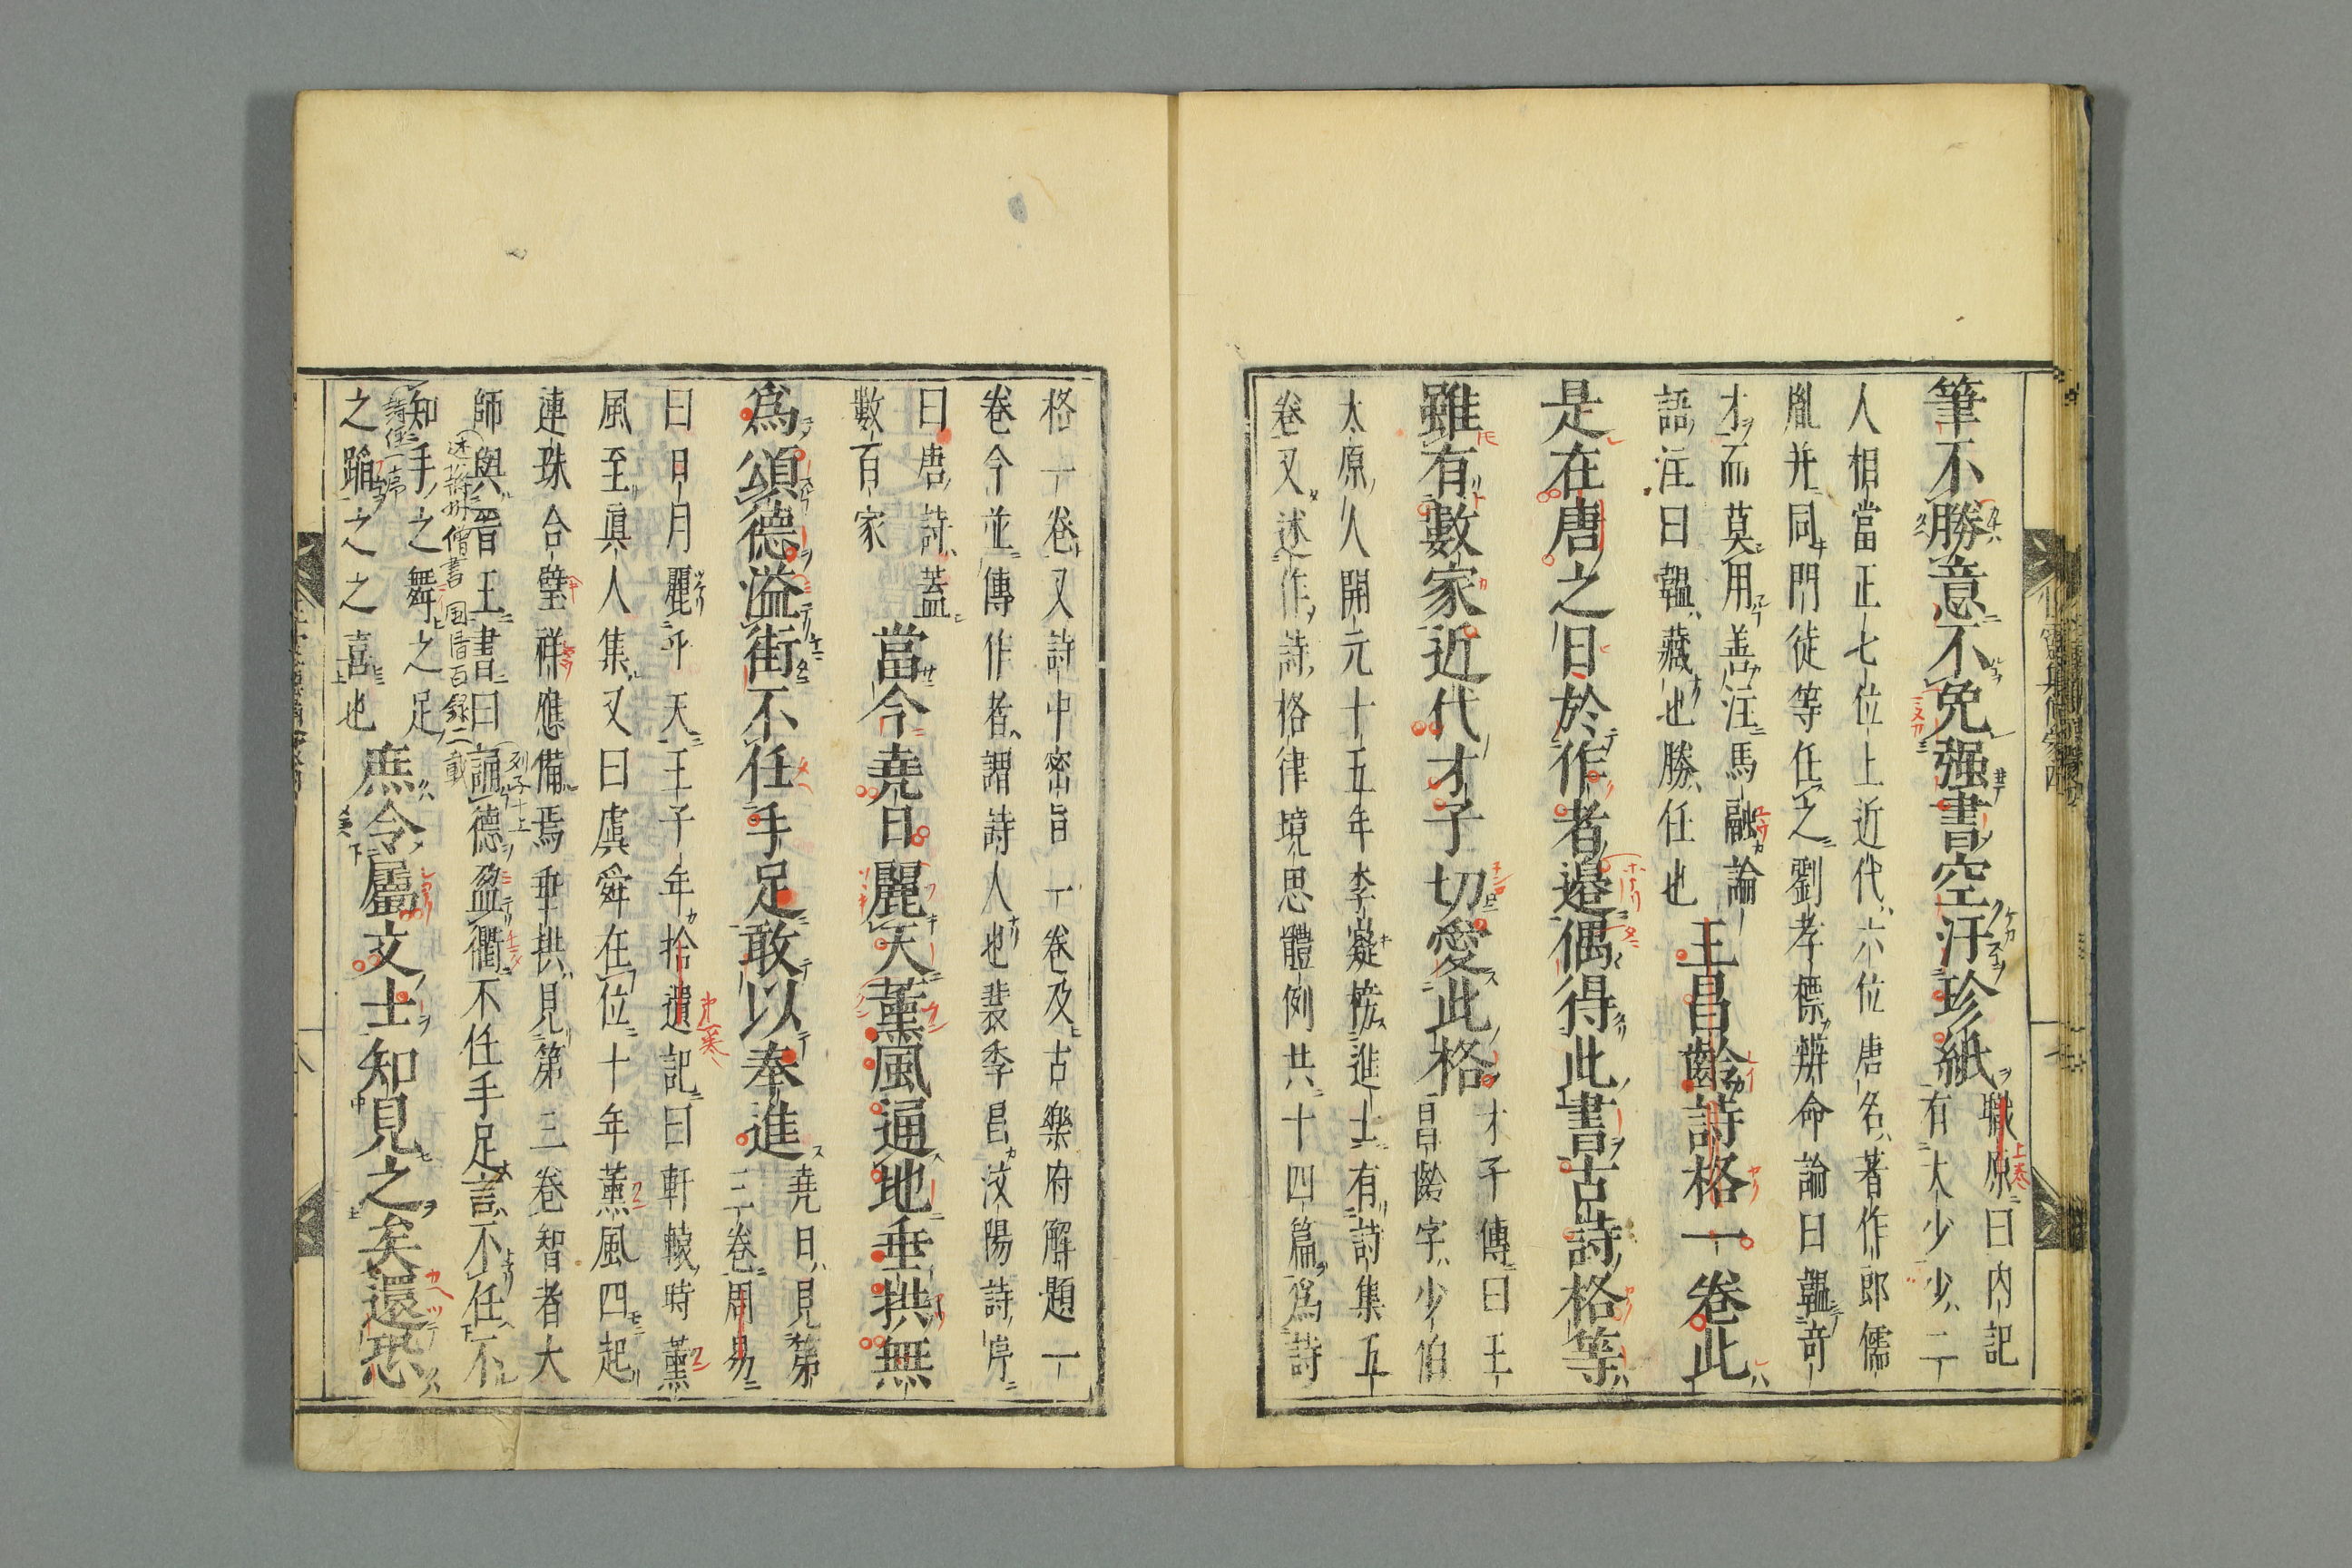 筆不勝意不免强書空汗珍紙職原曰内記
有大少少二
人相當正七位上近代六位唐名著作郎儒
胤并同門徒等任之劉孝標辨命論曰韞奇
才而莫用善注馬融論
語注曰韞藏也勝任也王昌齡詩格一卷此
是在唐之日於作者邊偶得此書古詩格等
雖有數家近代才子切愛此格才子傳曰王
昌齡字少伯
太原人開元十五年李嶷榜進士有詩集五
卷又述作詩格律境思體例共十四篇爲詩
格一卷又詩中密旨一卷及古樂府解題一
卷今並傳作者謂詩人也裴季昌汶陽詩序
曰唐詩蓋
數百家當今堯日麗天薫風通地垂拱無
爲頌德溢街不任手足敢以奉進堯日見第
三卷周易
曰日月麗乎天王子年拾遺記曰軒轅時薫
風至眞人集又曰虞舜在位十年薫風四起
連珠合璧祥應備焉垂拱見第三卷智者大
師與晋王書曰誦德盈衢不任手足言不任不
知手之舞之足
之蹈之之喜也庶令屬文士知見之矣還恐